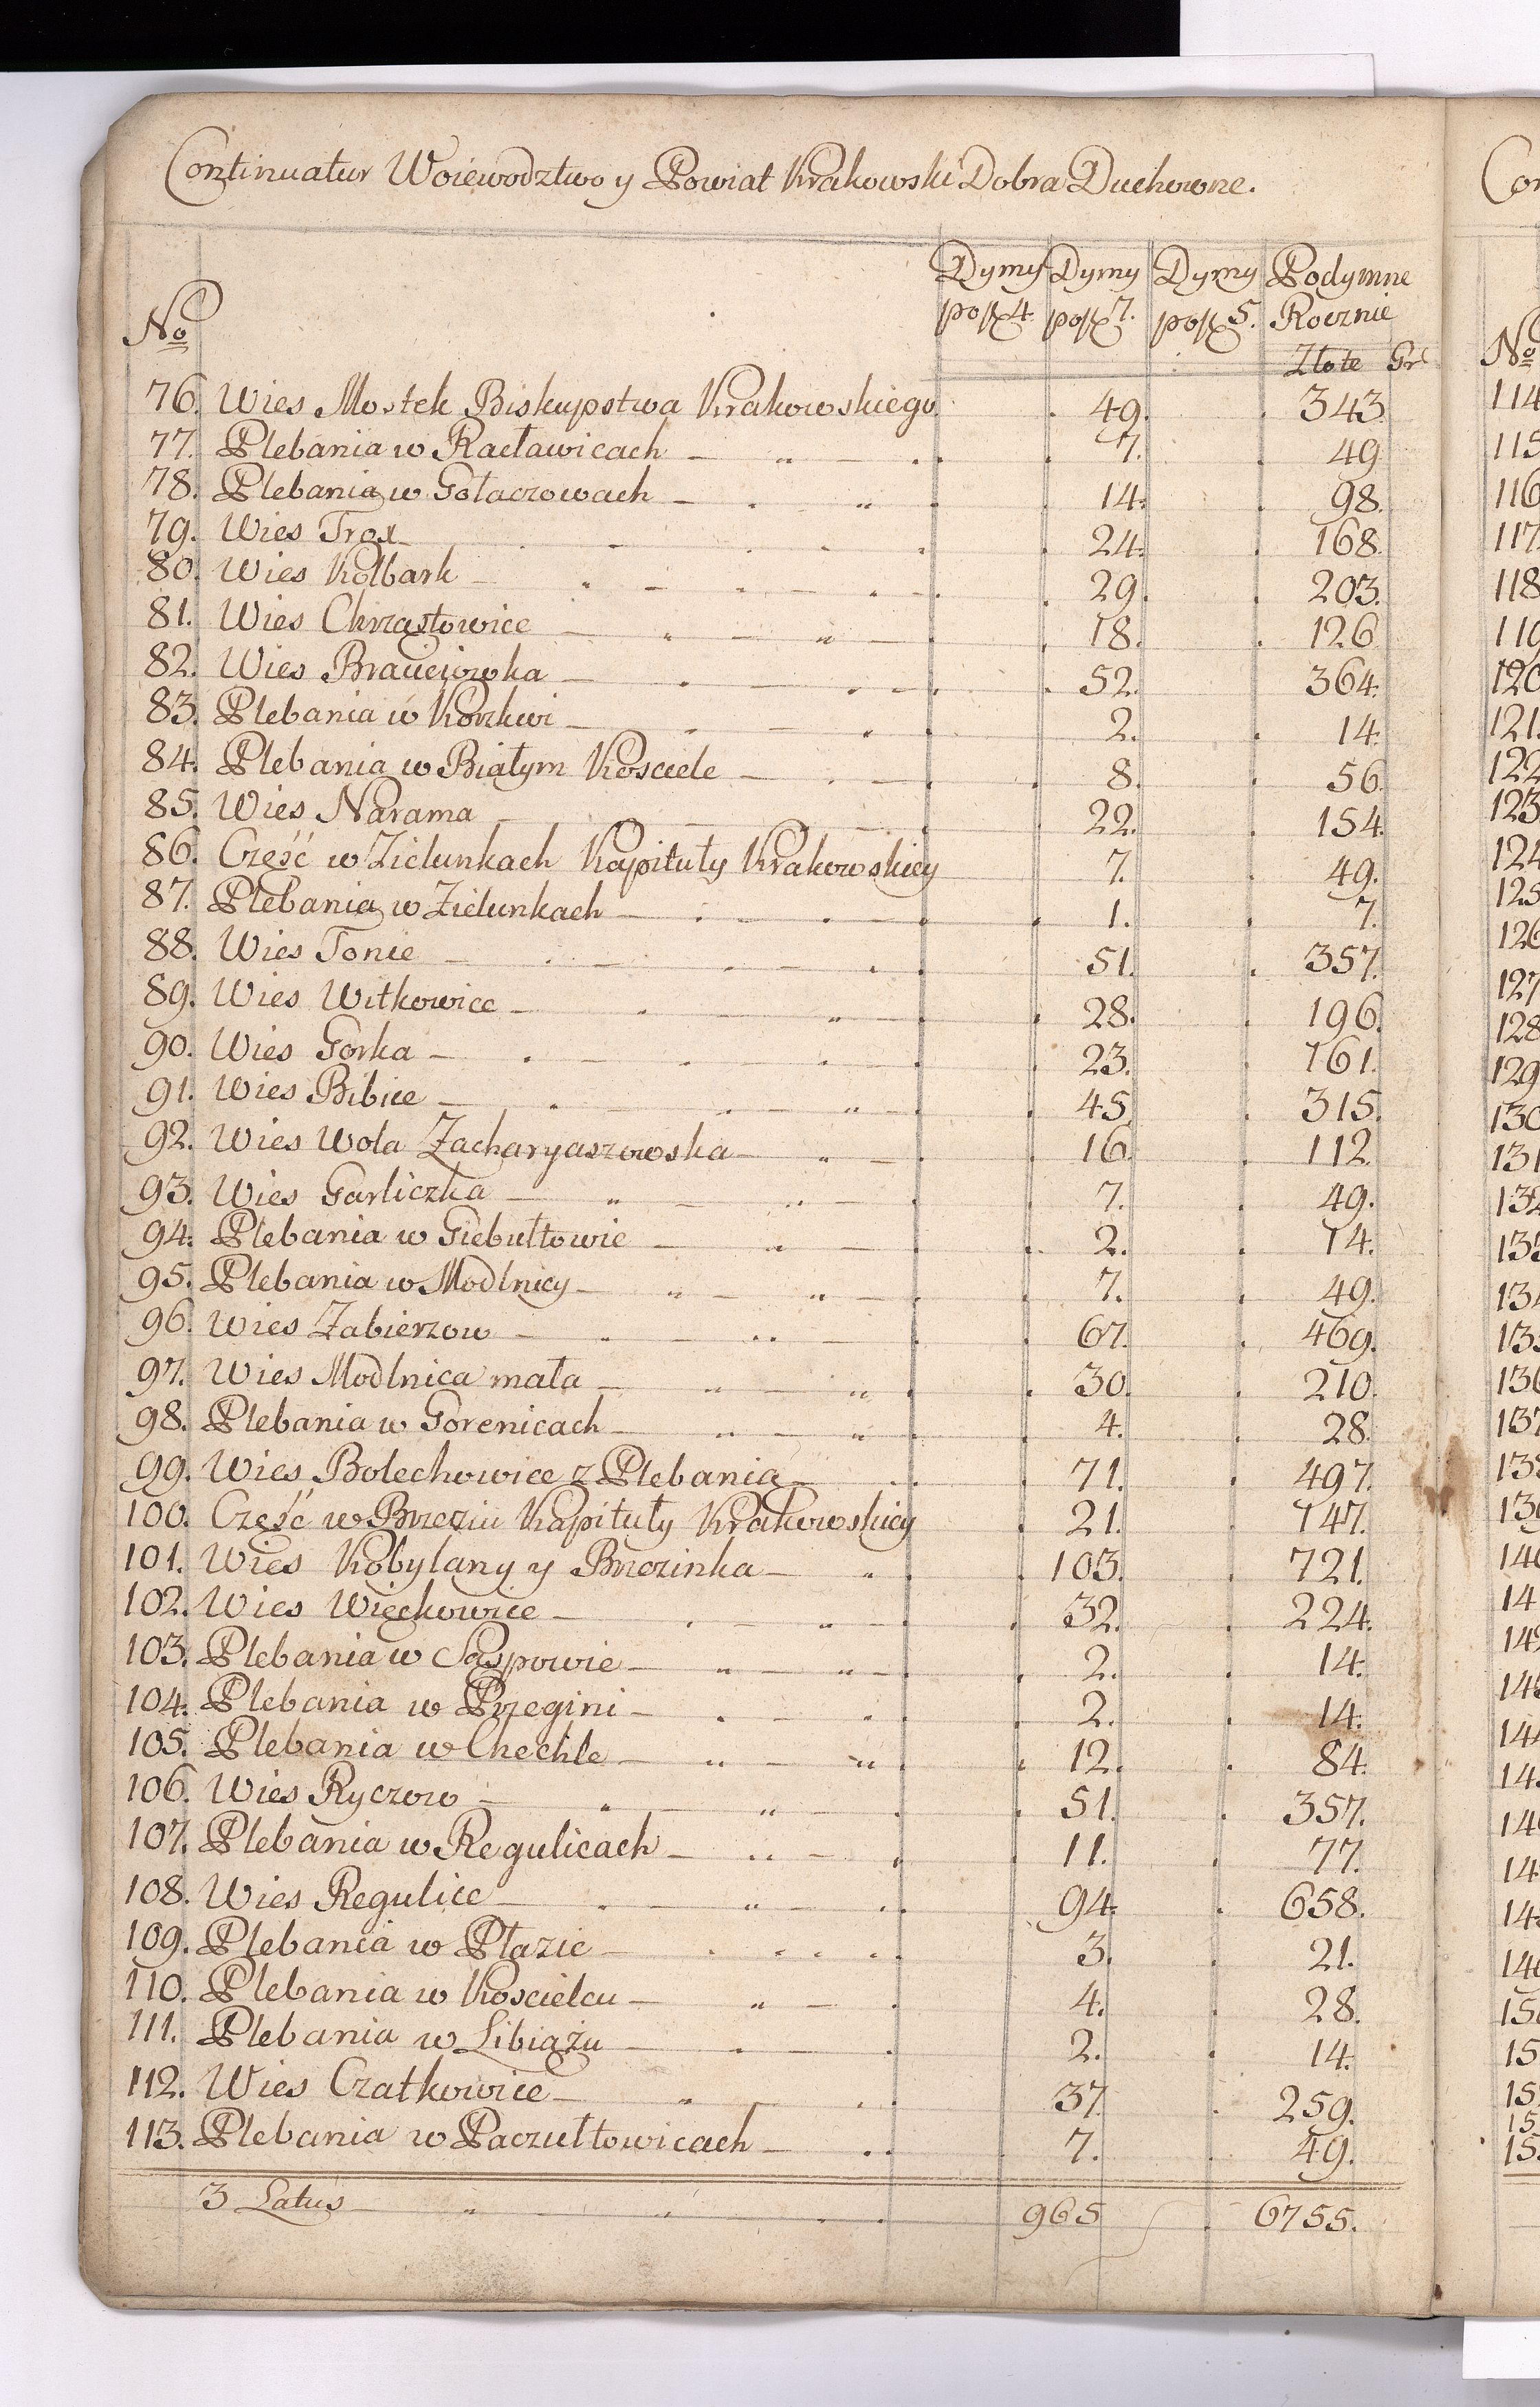 Continuatur Woiewodztwo y Powiat Krakowski Dobra Duchowne.
No Dymy po fl 4. Dymy po fl 7. Dymy po fl 5. Podymne Rocznie
Złote Gr
76. Wies Mostek Biskupstwa Krakowskiego 49. 343.
77. Plebania w Racławicach 7. 49
78. Plebania w Gołaczowach 14. 98.
79. Wies Trox 24. 168.
80. Wies Kolbark 29. 203.
81. Wies Chrząstowice 18. 126
82. Wies Brauciowka 52. 364.
83. Plebania w Korzkwi 2. 14.
84. Plebania w Białym Kosciele 8. 56.
85. Wies Narama 22. 154.
86. Część w Zielunkach Kapituły Krakowskiey 7. 49.
87. Plebania w Zielunkach 1. 7.
88. Wies Tonie 51. 357.
89. Wies Witkowice 28. 196.
90. Wies Gorka 23. 161.
91. Wies Bibice 45. 315.
92. Wies Wola Zacharyaszowska 16. 112.
93. Wies Garliczka 7. 49.
94. Plebania w Giebułtowie 2. 14.
95. Plebania w Modlnicy 7. 49.
96. Wies Zabierzow 67. 469.
97. Wies Modlnica mała 30. 210.
98. Plebania w Gorenicach 4. 28.
99. Wies Bolechowice z Plebanią 71. 497.
100. Część w Brzeziu Kapituły Krakowskiey 21. 147.
101. Wies Kobylany y Brzezinka 103. 721.
102. Wies Więckowice 32. 224.
103. Plebania w Sąspowie 2. 14.
104. Plebania w Przegini 2. 14.
105. Plebania w Chechle 12. 84.
106. Wies Ryczow 51. 357.
107. Plebania w Regulicach 11. 77.
108. Wies Regulice 94. 658.
109. Plebania w Płazie 3. 21.
110. Plebania w Koscielcu 4. 28.
111. Plebania w Libiążu 2. 14.
112. Wies Czatkowice 37. 259.
113. Plebania w Paczułtowicach 7. 49.
3 Latus 965 6755.
No
114
115
116
117
118
119
120
121.
122
123
124
125
126
127
128
129
130
131